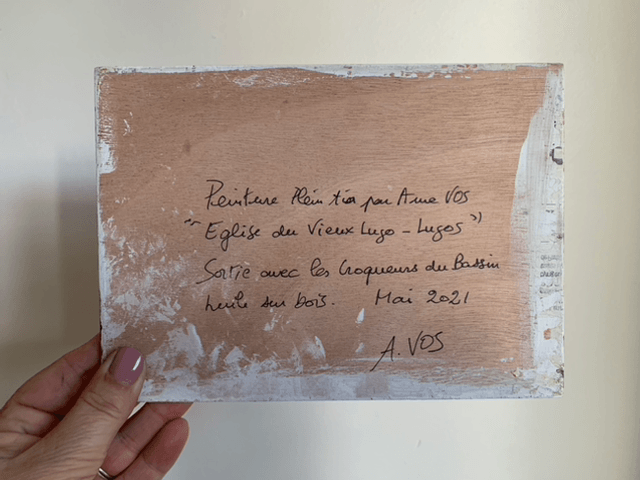 Peinture Plein Air par Anne VOS
"Eglise du Vieux Lugo - Lugos"
Sortie avec les Croqueurs du Bassin
huile sur bois. Mai 2021
A. VOS